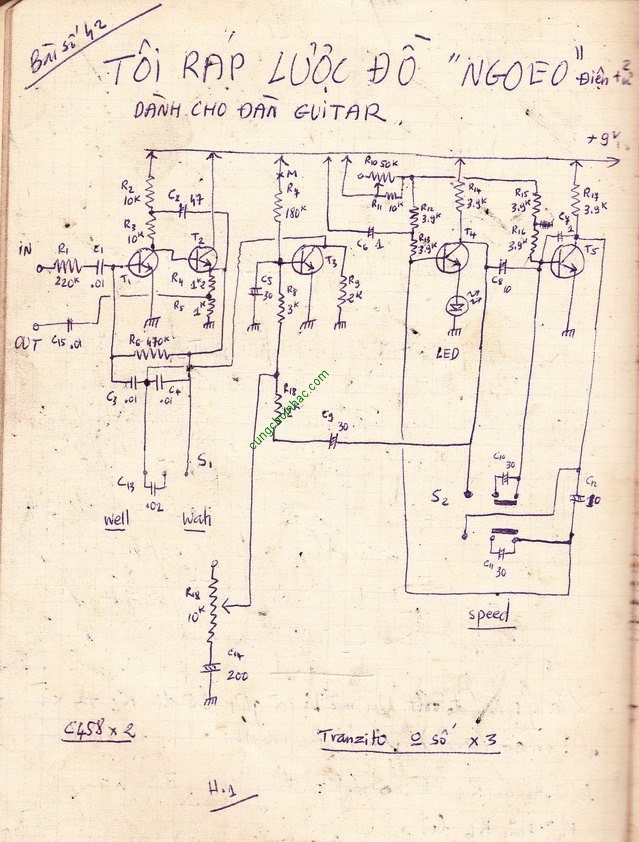 Bài số 42
TÔI RÁP LƯỢC ĐỒ "NGOEO" Điện tử
DÀNH CHO ĐÀN GUITAR
+9V
R10 50K
R2
10K
C2
47
M
R7
180K
R11
10K
R12
3.9K
R14
3.9K
R15
3.9K
R17
3.9K
R3
10K
C6
1
R13
3.9K
T4
R16
3.9K
C7
1
T5
IN
R1
220K
C1
.01
T1
T2
R4
1K2
R5
1K
C5
30
T3
R8
3K
R9
2K
C8
10
OUT
C15 .01
R6 470K
LED
C3
.01
C4
.01
R18
cungchoinhac.com
C9
30
C13
.02
S1
S2
C10
30
C12
Well
Wah
C11
30
R18
10K
speed
C14
200
C458 x 2
Tranzito o số x 3
H.1